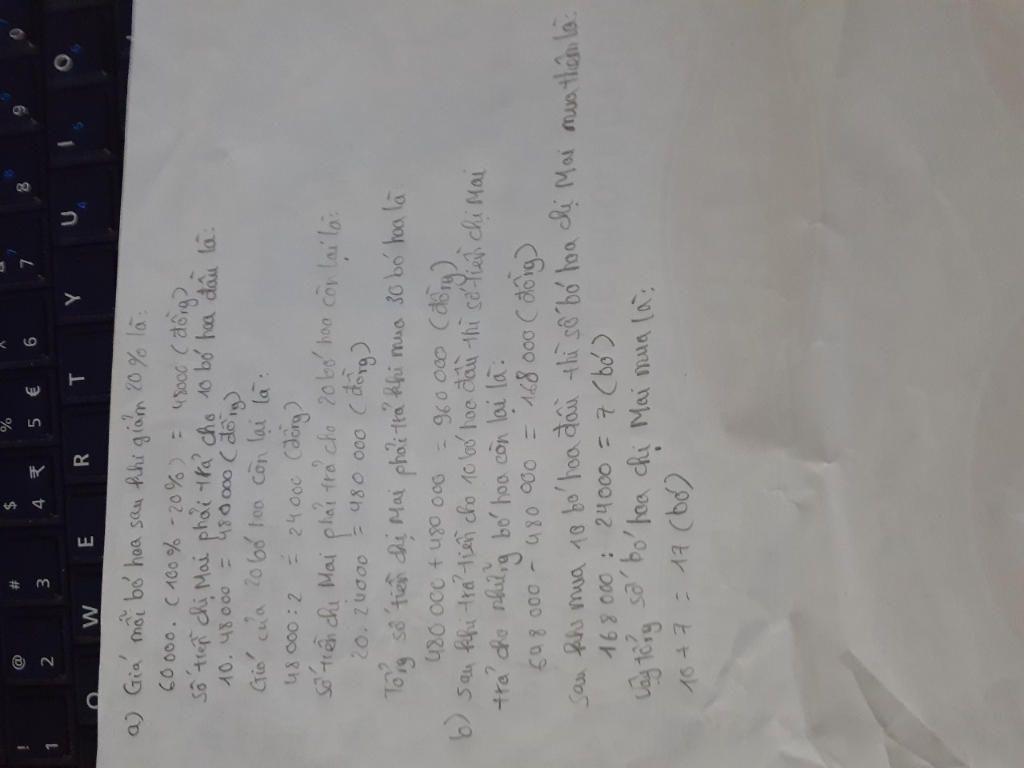 a) Giá mỗi bó hoa sau khi giảm 20% là:
60000.(100% - 20%) = 48000 (đồng)
Số tiền chị Mai phải trả cho 10 bó hoa đầu là:
10. 48000 = 480000 (đồng)
Giá của 20 bó hoa còn lại là:
48000:2 = 24000 (đồng)
Số tiền chị Mai phải trả cho 20 bó hoa còn lại là:
20. 24000 = 480 000 (đồng)
Tổng số tiền chị Mai phải trả khi mua 30 bó hoa là
480 000 + 480 000 = 960 000 (đồng)
b) Sau khi trả tiền cho 10 bó hoa đầu thì số tiền chị Mai
trả cho những bó hoa còn lại là:
648 000 - 480 000 = 168 000 (đồng)
Sau khi mua 10 bó hoa đầu thì số bó hoa chị Mai mua thêm là:
168 000 : 24000 = 7 (bó)
Vậy tổng số bó hoa chị Mai mua là:
10 + 7 = 17 (bó)
! @ # $ % ^
1 2 3 4 ₹ 5 € 6 7 8 9
Q W E R T Y U 4 I 5 O 6